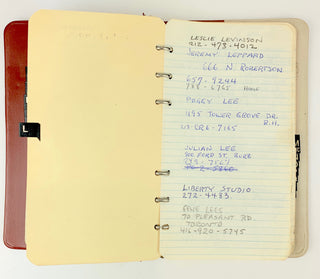 L
LESLIE LEVINSON
212-473-4012
JEREMY LEPPARD
666 N ROBERTSON
657-9244
HOME
PEGGY LEE
1195 TOWER GROVE DR.
B.H.
JULIAN LEE
300 FORD ST. BURB.
LIBERTY STUDIO
272-4483
GENE LEES
70 PLEASANT RD.
TORONTO
416-920-5745